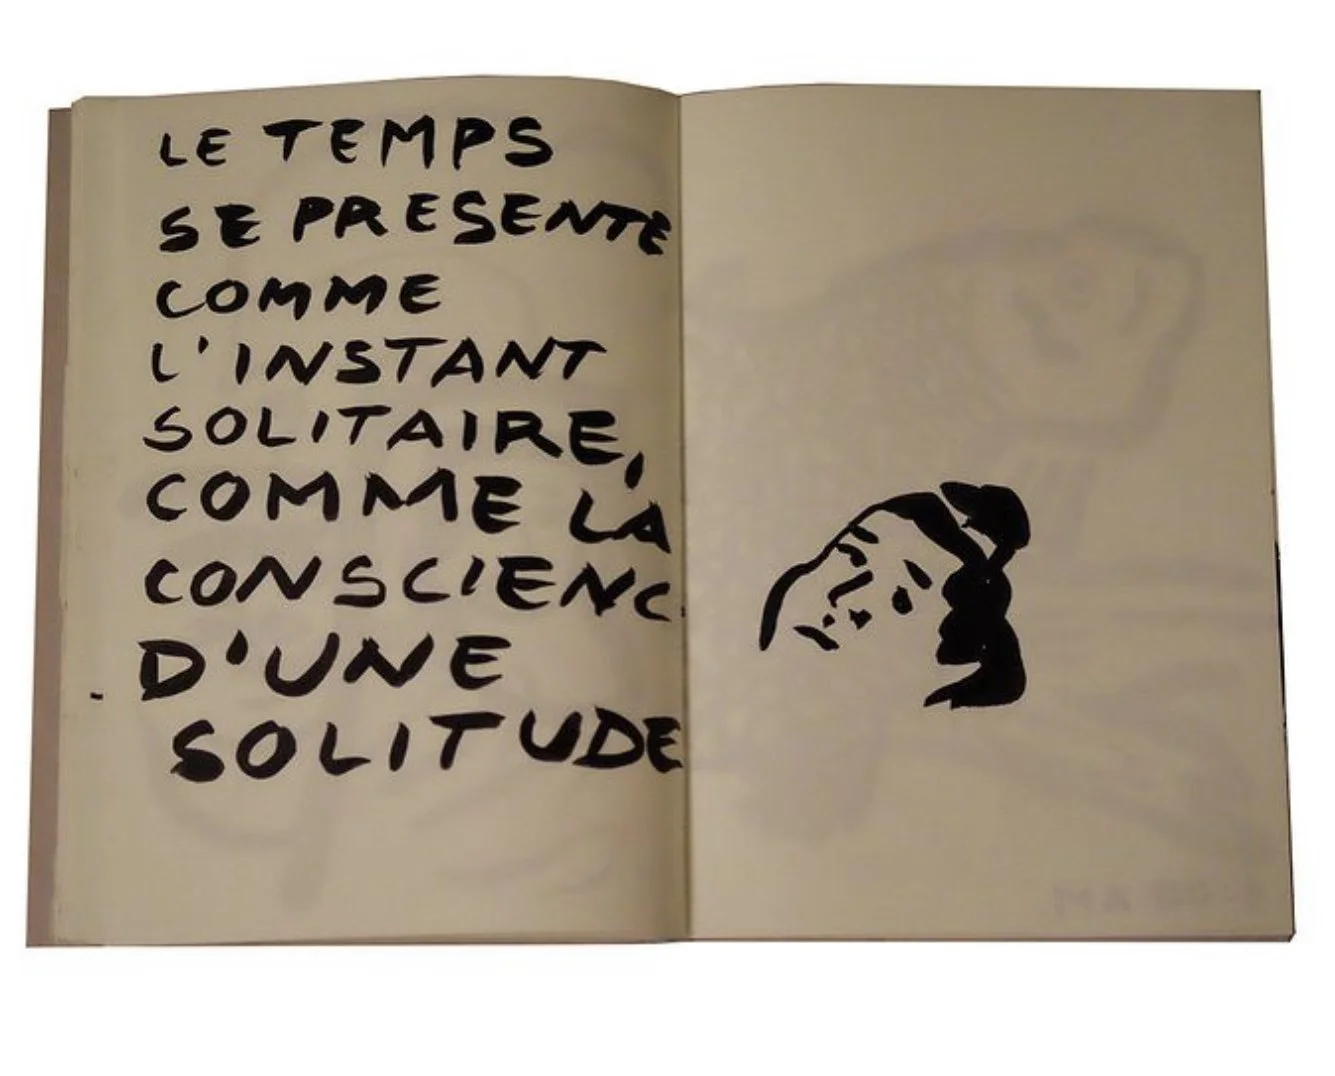 LE TEMPS
SE PRESENTE
COMME
L'INSTANT
SOLITAIRE,
COMME LA
CONSCIENC
D'UNE
SOLITUDE